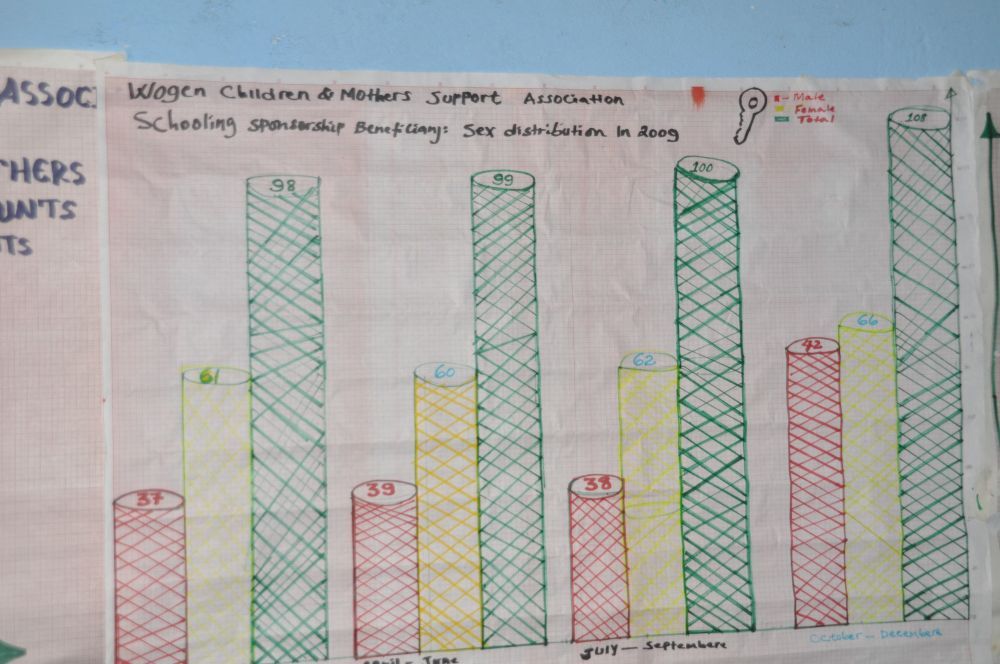 ASSOC:
THERS
UNTS
TS
Wogen Children & Mothers Support Association
Schooling sponsorship Beneficiary: Sex distribution In 2009
- Male
Female
Total
98
99
100
108
61
60
62
42
66
37
39
38
April - June
JULY - Septembere
October - Decembere